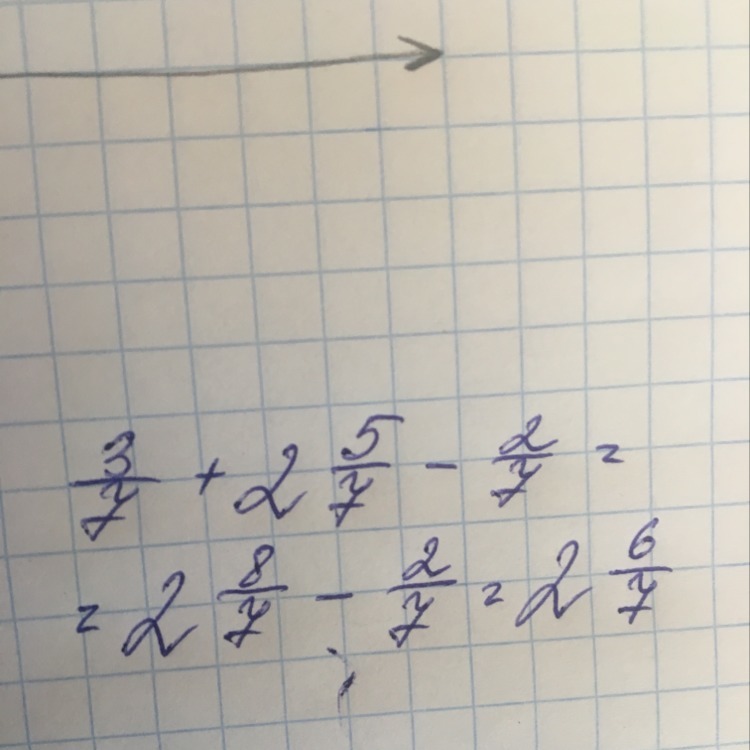 3/7 + 2 5/7 - 2/7 =
= 2 8/7 - 2/7 = 2 6/7